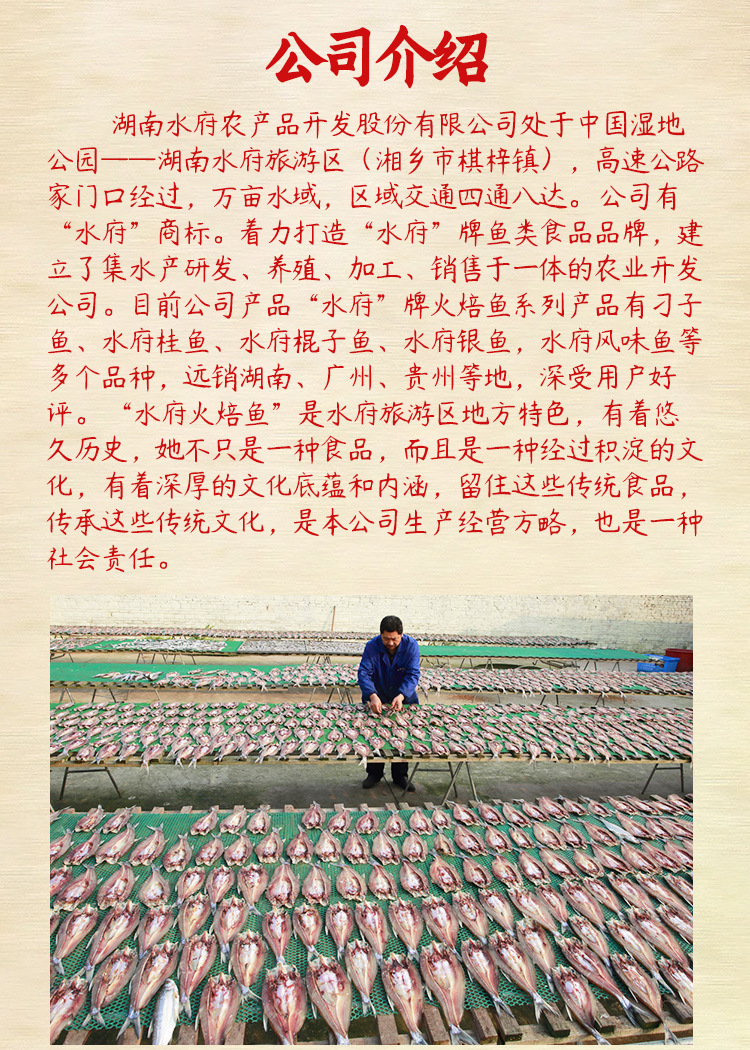 公司介绍
湖南水府农产品开发股份有限公司处于中国湿地
公园——湖南水府旅游区（湘乡市棋梓镇），高速公路
家门口经过，万亩水域，区域交通四通八达。公司有
“水府”商标。着力打造“水府”牌鱼类食品品牌，建
立了集水产研发、养殖、加工、销售于一体的农业开发
公司。目前公司产品“水府”牌火焙鱼系列产品有刁子
鱼、水府桂鱼、水府棍子鱼、水府银鱼，水府风味鱼等
多个品种，远销湖南、广州、贵州等地，深受用户好
评。“水府火焙鱼”是水府旅游区地方特色，有着悠
久历史，她不只是一种食品，而且是一种经过积淀的文
化，有着深厚的文化底蕴和内涵，留住这些传统食品，
传承这些传统文化，是本公司生产经营方略，也是一种
社会责任。